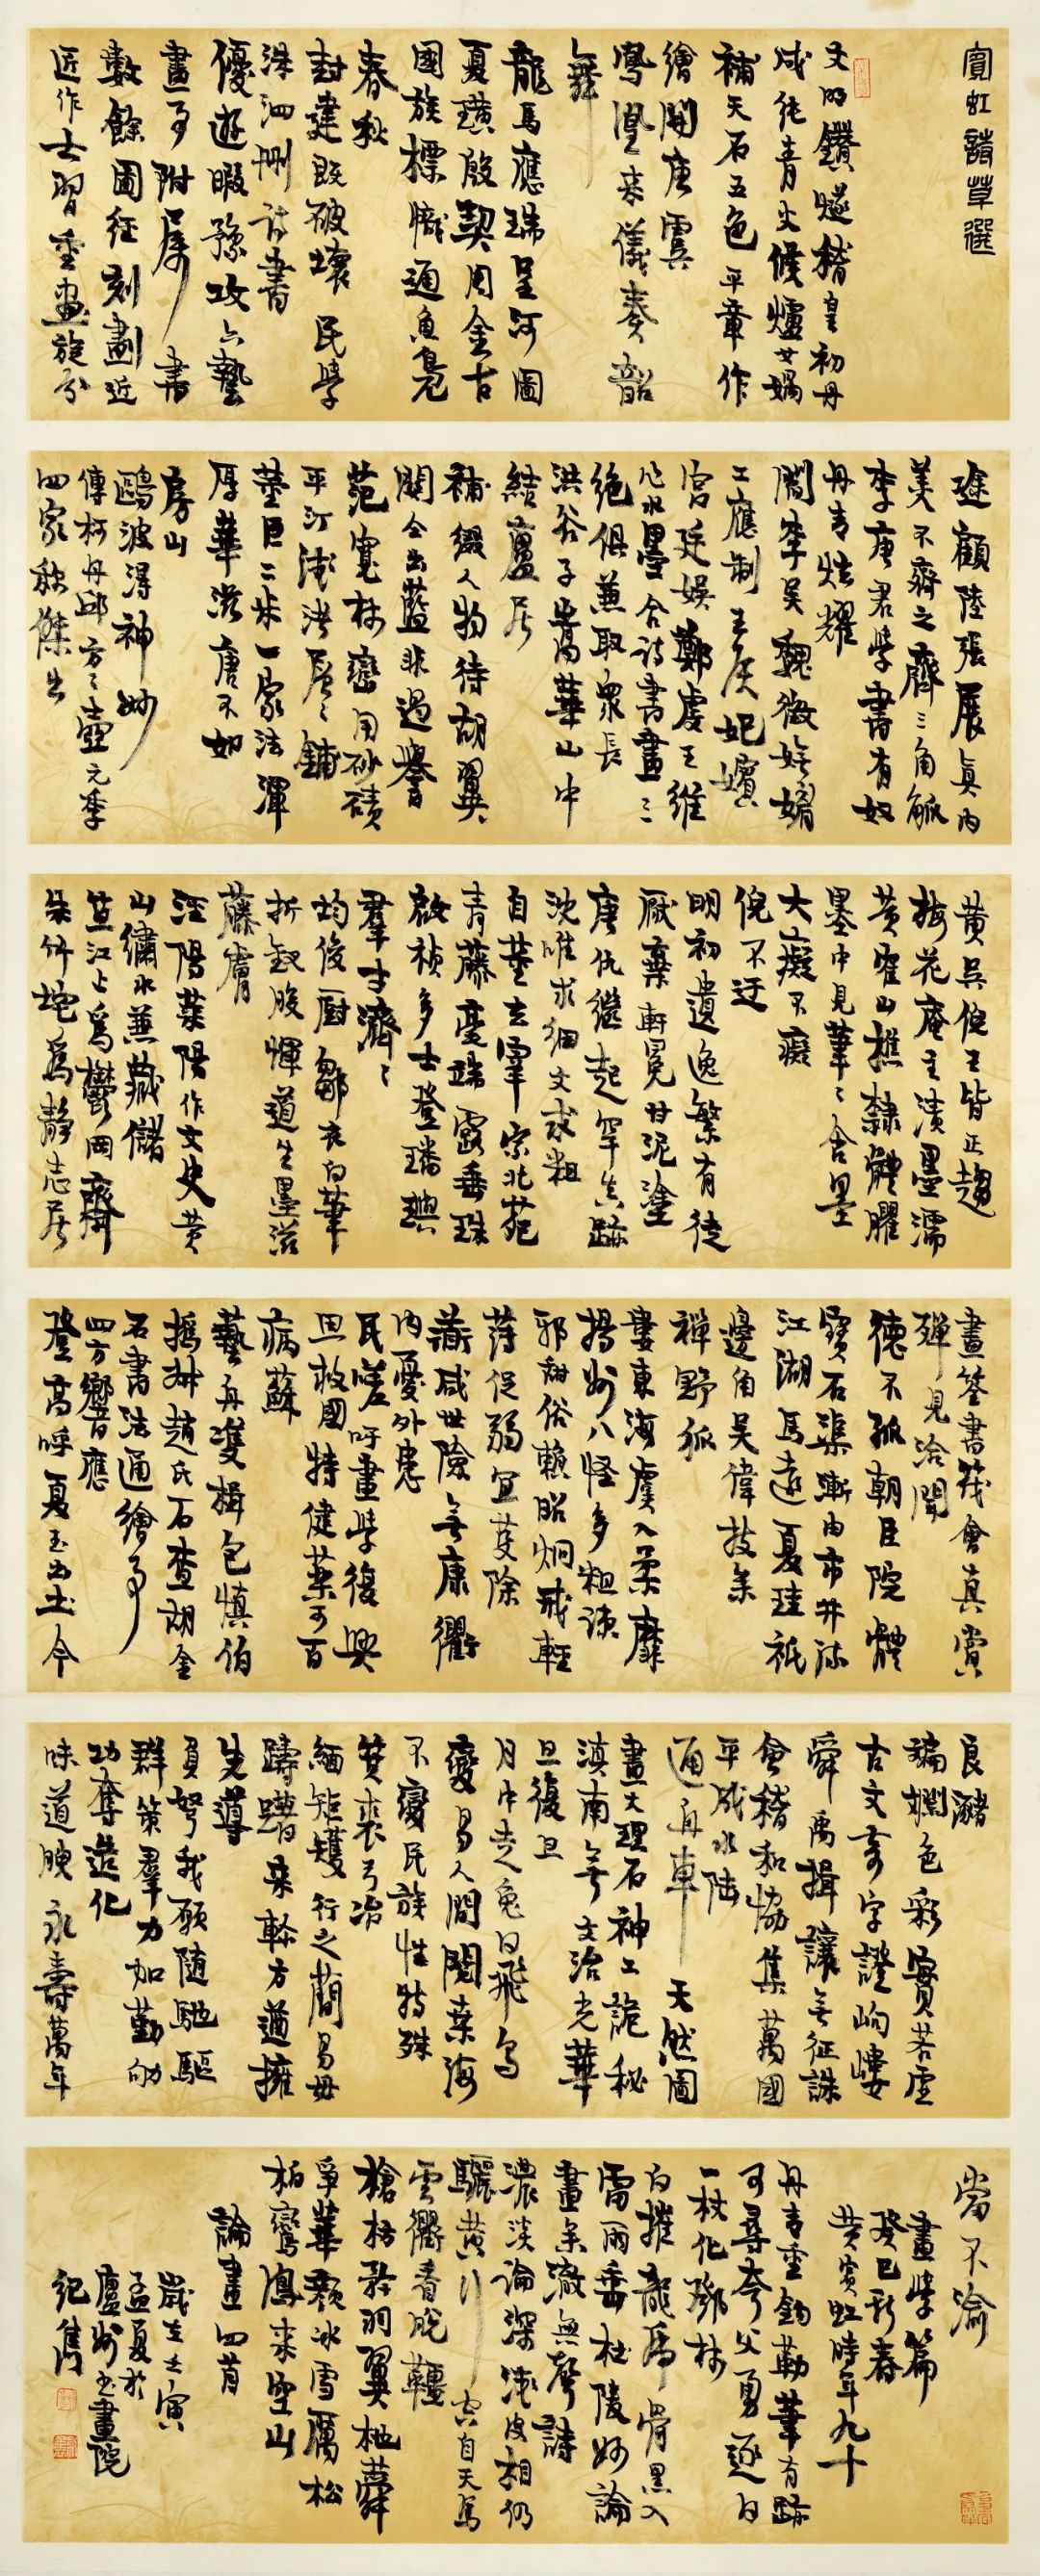 賓虹詩草選
文明鑽燧稽皇初丹
成純青火候爐女媧
補天石五色平章作
繪開唐虞
鳳凰來儀奏韶
舞
龍馬應瑞呈河圖
夏璜殷契周金古
國族標幟通魚鳧
春秋
封建既破壞民學
洙泗刪詩書
優遊暇豫攻六藝
畫事附屬書
數餘圖徑刻劃近
匠作士習重畫旋分
途顧陸張展真內
美不齊之齊三角觚
李唐君學書有奴
丹青炫耀
閻李吳魏徵嫵媚
工應制王侯妃嬪
宮廷娛鄭虔王維
作水墨合詩書畫三
絕俱兼取眾長
洪谷子嵩華山中
結廬居
補綴人物待胡翼
關仝出藍非過譽
范寬林巒用砂磧
平汀淺渚層層鋪
董巨二米一家法渾
厚華滋唐不如
房山
鷗波得神妙
傳柯丹邱方方壺元季
四家稱傑出
黃吳倪王皆正趨
梅花庵主漬墨濡
黃鶴山樵隸體臞
墨中見筆筆含墨
大癡不癡
倪不迂
明初遺逸繁有徒
厭棄軒冕甘泥塗
唐仇繼起罕真跡
沈唯求細文求粗
自董玄宰宗北苑
青藤毫端露垂珠
啟禎多士登璠璵
羣才濟濟
均俊廚鄒衣白筆
折釵股惲道生墨滋
藤膚
涇陽萊陽作文史黃
山繡水兼藏儲
笪江上爲鬱岡齋
朱竹垞爲靜志居
畫筌書筏會真賞
殫見洽聞
德不孤朝臣院體
寶石渠漸由市井流
江湖馬遠夏珪祇
邊角吳偉技窮
禪野狐
婁東海虞入柔靡
揚州八怪多粗疎
邪甜俗賴昭炯戒輕
薄促弱宜芟除
道咸世險無康衢
內憂外患
民嗟吁畫學復興
思救國特健藥可百
病蘇
藝舟雙楫包慎伯
撝叔趙氏石查胡金
石書法通繪事
四方響應
登高呼夏玉出土今
良瀦
斒斕色彩實若虛
古文奇字證岣嶁
舜禹揖讓無征誅
會稽和協集萬國
平成水陸
通舟車天然圖
畫大理石神工詭秘
滇南無文治光華
旦復旦
月中走兔日飛烏
變易人間閱桑海
不變民族性特殊
箕裘弓冶
緬矩矱行之簡易毋
躊躇來軫方遒擁
先導
負弩我願隨馳驅
群策羣力加勤劬
功奪造化
味道腴永壽萬年
當不渝
畫學篇
癸巳新春
黃賓虹時年九十
丹青重鉤勒筆有跡
可尋夸父勇逐日
一杖化鄧林
白摧龍虎骨黑入
雷雨垂杜陵妙論
畫氣澈無聲詩
濃淡論深淺皮相仍
驪黃空自天馬
雲衢看脫韁
槍枋矜羽翼梔蕣
爭華顏冰雪厲松
柏鸞鳳來空山
論畫四首
歲在壬寅
孟夏於
廬州書畫院
紀雋